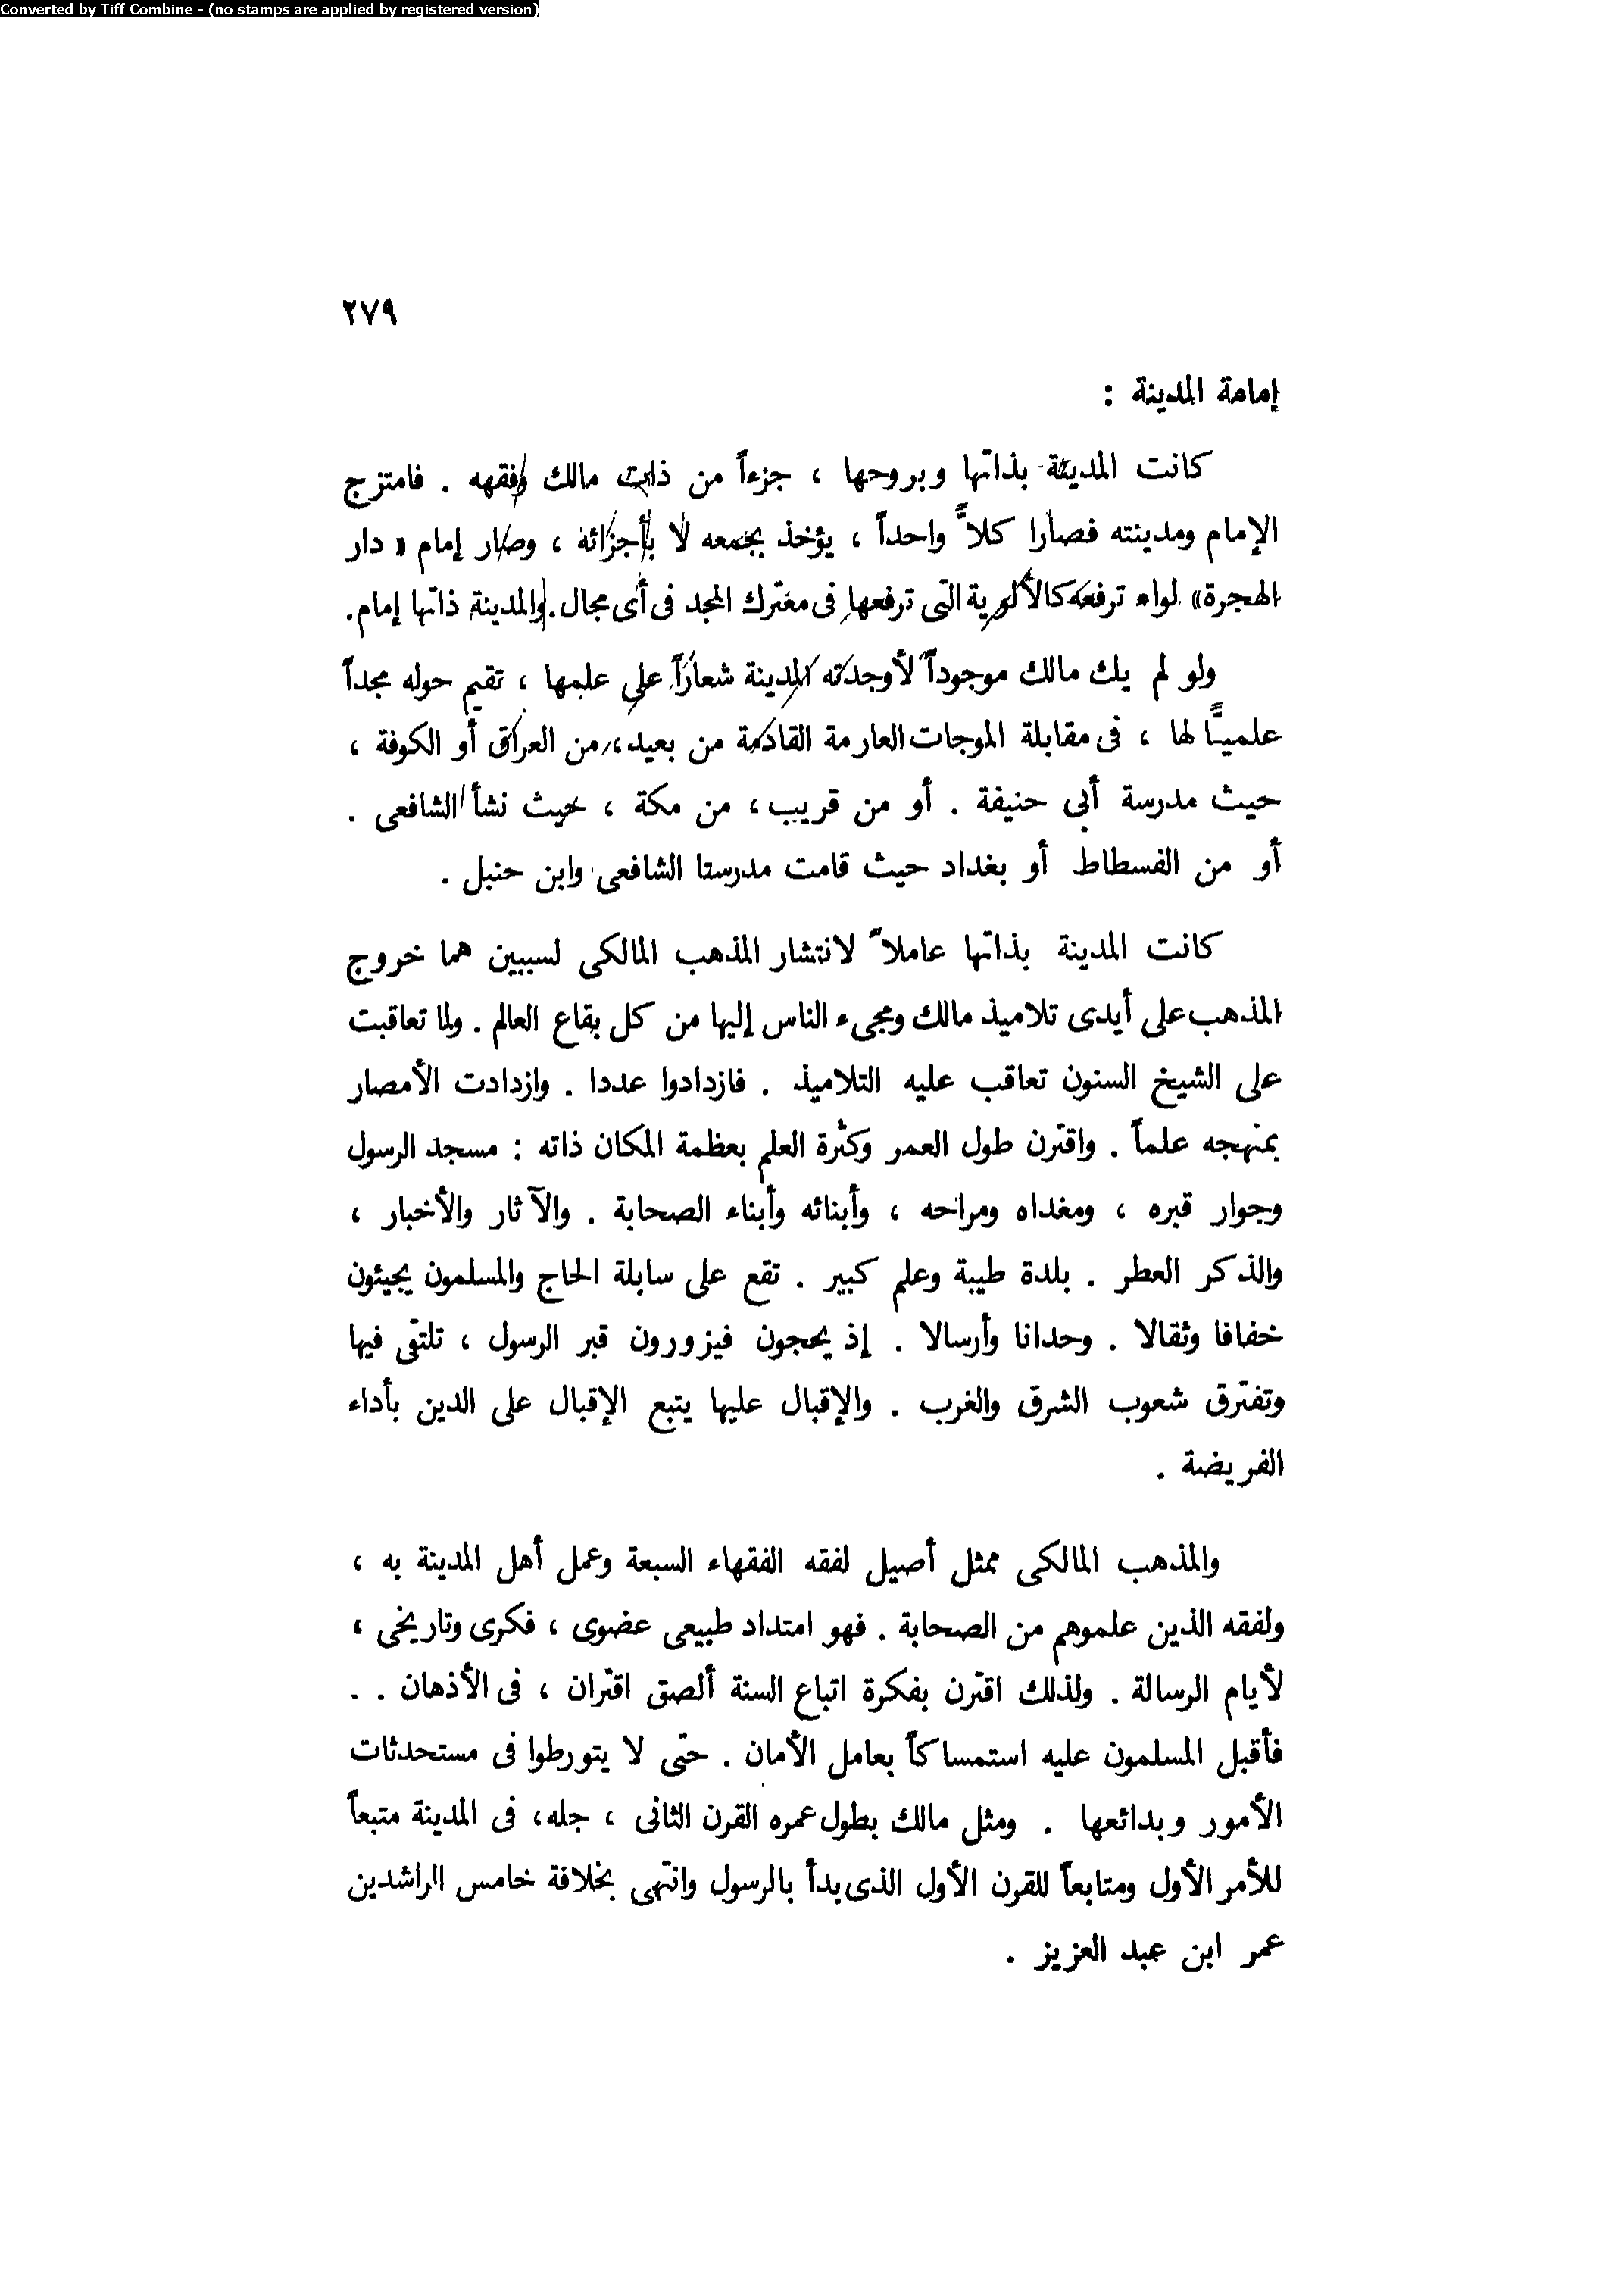 Converted by Tiff Combine - (no stamps are applied by registered version)
٢٧٩
إمامة المدينة :
كانت المدينة بذاتها وبروحها ، جزءاً من ذات مالك وفقهه . فامتزج
الإمام ومدينته فصارا كلاًّ واحداً ، يؤخذ بجمعه لا بأجزائه ، وصار إمام « دار
الهجرة» لواء ترفعه كالألوية التى ترفعها فى معترك المجد فى أى مجال. والمدينة ذاتها إمام.
ولو لم يك مالك موجوداً لأوجدته المدينة شعاراً على علمها ، تقيم حوله مجداً
علميًّا لها ، فى مقابلة الموجات العارمة القادمة من بعيد، من العراق أو الكوفة ،
حيث مدرسة أبى حنيفة . أو من قريب ، من مكة ، حيث نشأ الشافعى .
أو من الفسطاط أو بغداد حيث قامت مدرستا الشافعى وابن حنبل .
كانت المدينة بذاتها عاملاً لانتشار المذهب المالكى لسببين هما خروج
المذهب على أيدى تلاميذ مالك ومجىء الناس إليها من كل بقاع العالم . ولما تعاقبت
على الشيخ السنون تعاقب عليه التلاميذ . فازدادوا عددا . وازدادت الأمصار
بمنهجه علماً . واقترن طول العمر وكثرة العلم بعظمة المكان ذاته : مسجد الرسول
وجوار قبره ، ومغداه ومراحه ، وأبنائه وأبناء الصحابة . والآثار والأخبار ،
والذكر العطر . بلدة طيبة وعلم كبير . تقع على سابلة الحاج والمسلمون يجيئون
خفافا وثقالا . وحدانا وأرسالا . إذ يحجون فيزورون قبر الرسول ، تلتقى فيها
وتفترق شعوب الشرق والغرب . والإقبال عليها يتبع الإقبال على الدين بأداء
الفريضة .
والمذهب المالكى ممثل أصيل لفقه الفقهاء السبعة وعمل أهل المدينة به ،
ولفقه الذين علموهم من الصحابة . فهو امتداد طبيعى عضوى ، فكرى وتاريخى ،
لأيام الرسالة . ولذلك اقترن بفكرة اتباع السنة ألصق اقتران ، فى الأذهان . .
فأقبل المسلمون عليه استمساكاً بعامل الأمان . حتى لا يتورطوا فى مستحدثات
الأمور وبدائعها . ومثل مالك بطول عمره القرن الثانى ، جله، فى المدينة متبعاً
للأمر الأول ومتابعاً للقرن الأول الذى بدأ بالرسول وانتهى بخلافة خامس الراشدين
عمر ابن عبد العزيز .